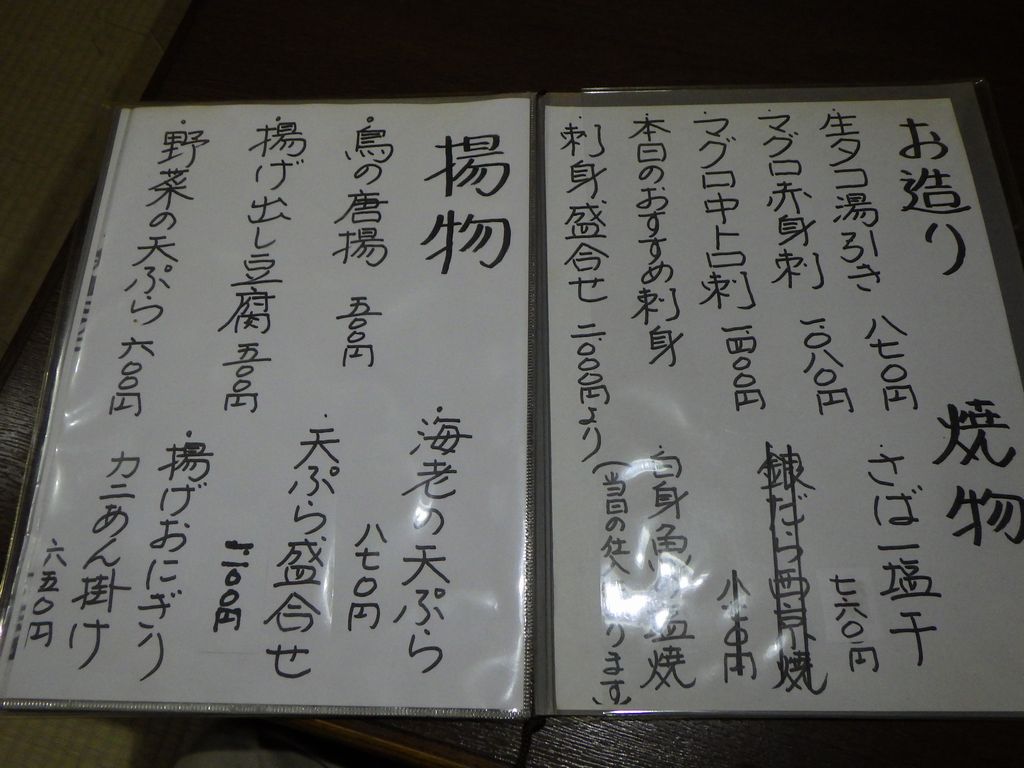 お造り
・生タコ湯引き 八七〇円
・マグロ赤身刺 一、〇八〇円
・マグロ中トロ刺 一、四〇〇円
・本日のおすすめ刺身
・刺身盛合せ 二、〇〇〇円より
焼物
・さば一塩干 七六〇円
銀だら西京焼
・白身魚 塩焼
(当日の仕入 ります)
揚物
・鳥の唐揚 五〇〇円
・揚げ出し豆腐 五〇〇円
・野菜の天ぷら 六〇〇円
・海老の天ぷら 八七〇円
・天ぷら盛合せ 一、一〇〇円
・揚げおにぎり
カニあん掛け 六五〇円